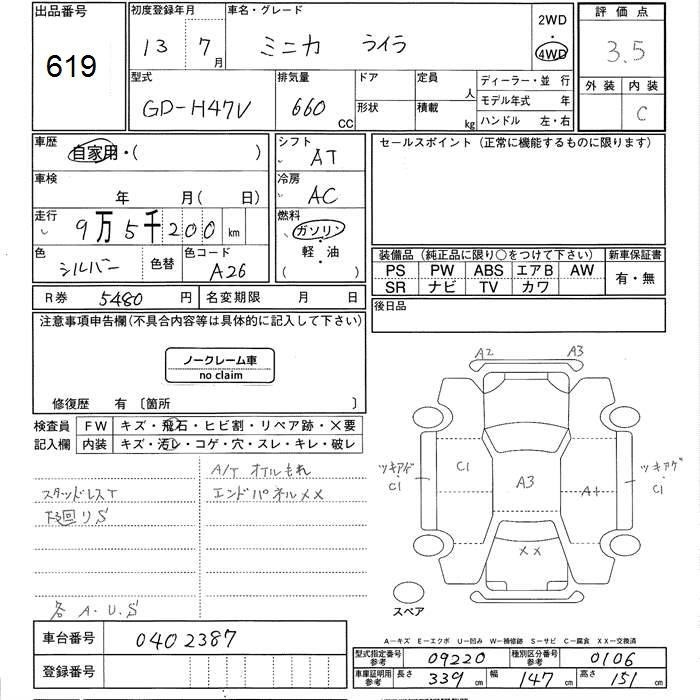 出品番号
619
初度登録年月
13 7月
車名・グレード
ミニカ ライラ
2WD
・
4WD
評価点
3.5
外装 内装
C
型式
GD-H47V
排気量
660 CC
ドア
形状
定員 人
積載 kg
ディーラー・並 行
モデル年式 年
ハンドル 左・右
車歴
自家用・( )
シフト
AT
車検
年 月( 日)
冷房
AC
走行
9万5千200km
燃料
ガソリン
軽・油
( )
色
シルバー
色替
色コード
A26
R券 5480 円
名変期限 月 日
セールスポイント(正常に機能するものに限ります)
装備品(純正品に限り○をつけて下さい)
PS PW ABS エアB AW
SR ナビ TV カワ
新車保証書
有・無
後日品
注意事項申告欄(不具合内容等は具体的に記入して下さい)
ノークレーム車
no claim
修復歴 有〔箇所 〕
検査員
記入欄
FW キズ・飛石・ヒビ割・リペア跡・×要
内装 キズ・汚レ・コゲ・穴・スレ・キレ・破レ
A/T オイルもれ
スタッドレスT
エンドパネルXX
下回りS
各 A・U・S
A2 A3
ツキアゲ
・
C1
C1
A3
A1
ツキアゲ
・
C1
XX
スペア
A−キズ E−エクボ U−凹み W−補修跡 S−サビ C−腐食 XX−交換済
車台番号 0402387
登録番号
型式指定番号
参考
09220
種別区分番号
参考
0106
車庫証明用
参考
長さ 339cm
幅 147cm
高さ 151cm